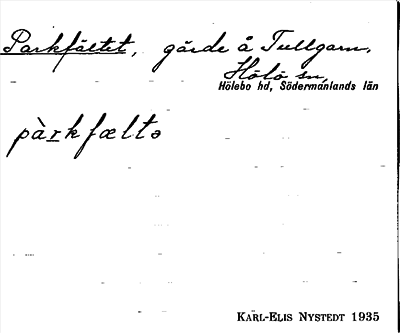 Parkfältet, gärde å Tullgarn,
Hölö sn,
Hölebo hd, Södermanlands län
pàrkfæltə
KARL-ELIS NYSTEDT 1935